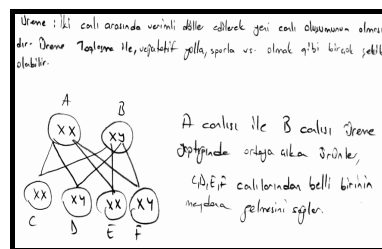 Üreme : İki canlı arasında verimli döller edilerek yeni canlı oluşumunun olması
dır. Üreme Tozlaşma ile, vejatatif yolla, sporla vs. olmak gibi birçok şekilde
olabilir.
A
B
XX
XY
XX
XY
XX
XY
C
D
E
F
A canlısı ile B canlısı üreme
yaptığında ortaya çıkan ürünler,
C,D,E,F canlılarından belli birinin
meydana gelmesini sağlar.